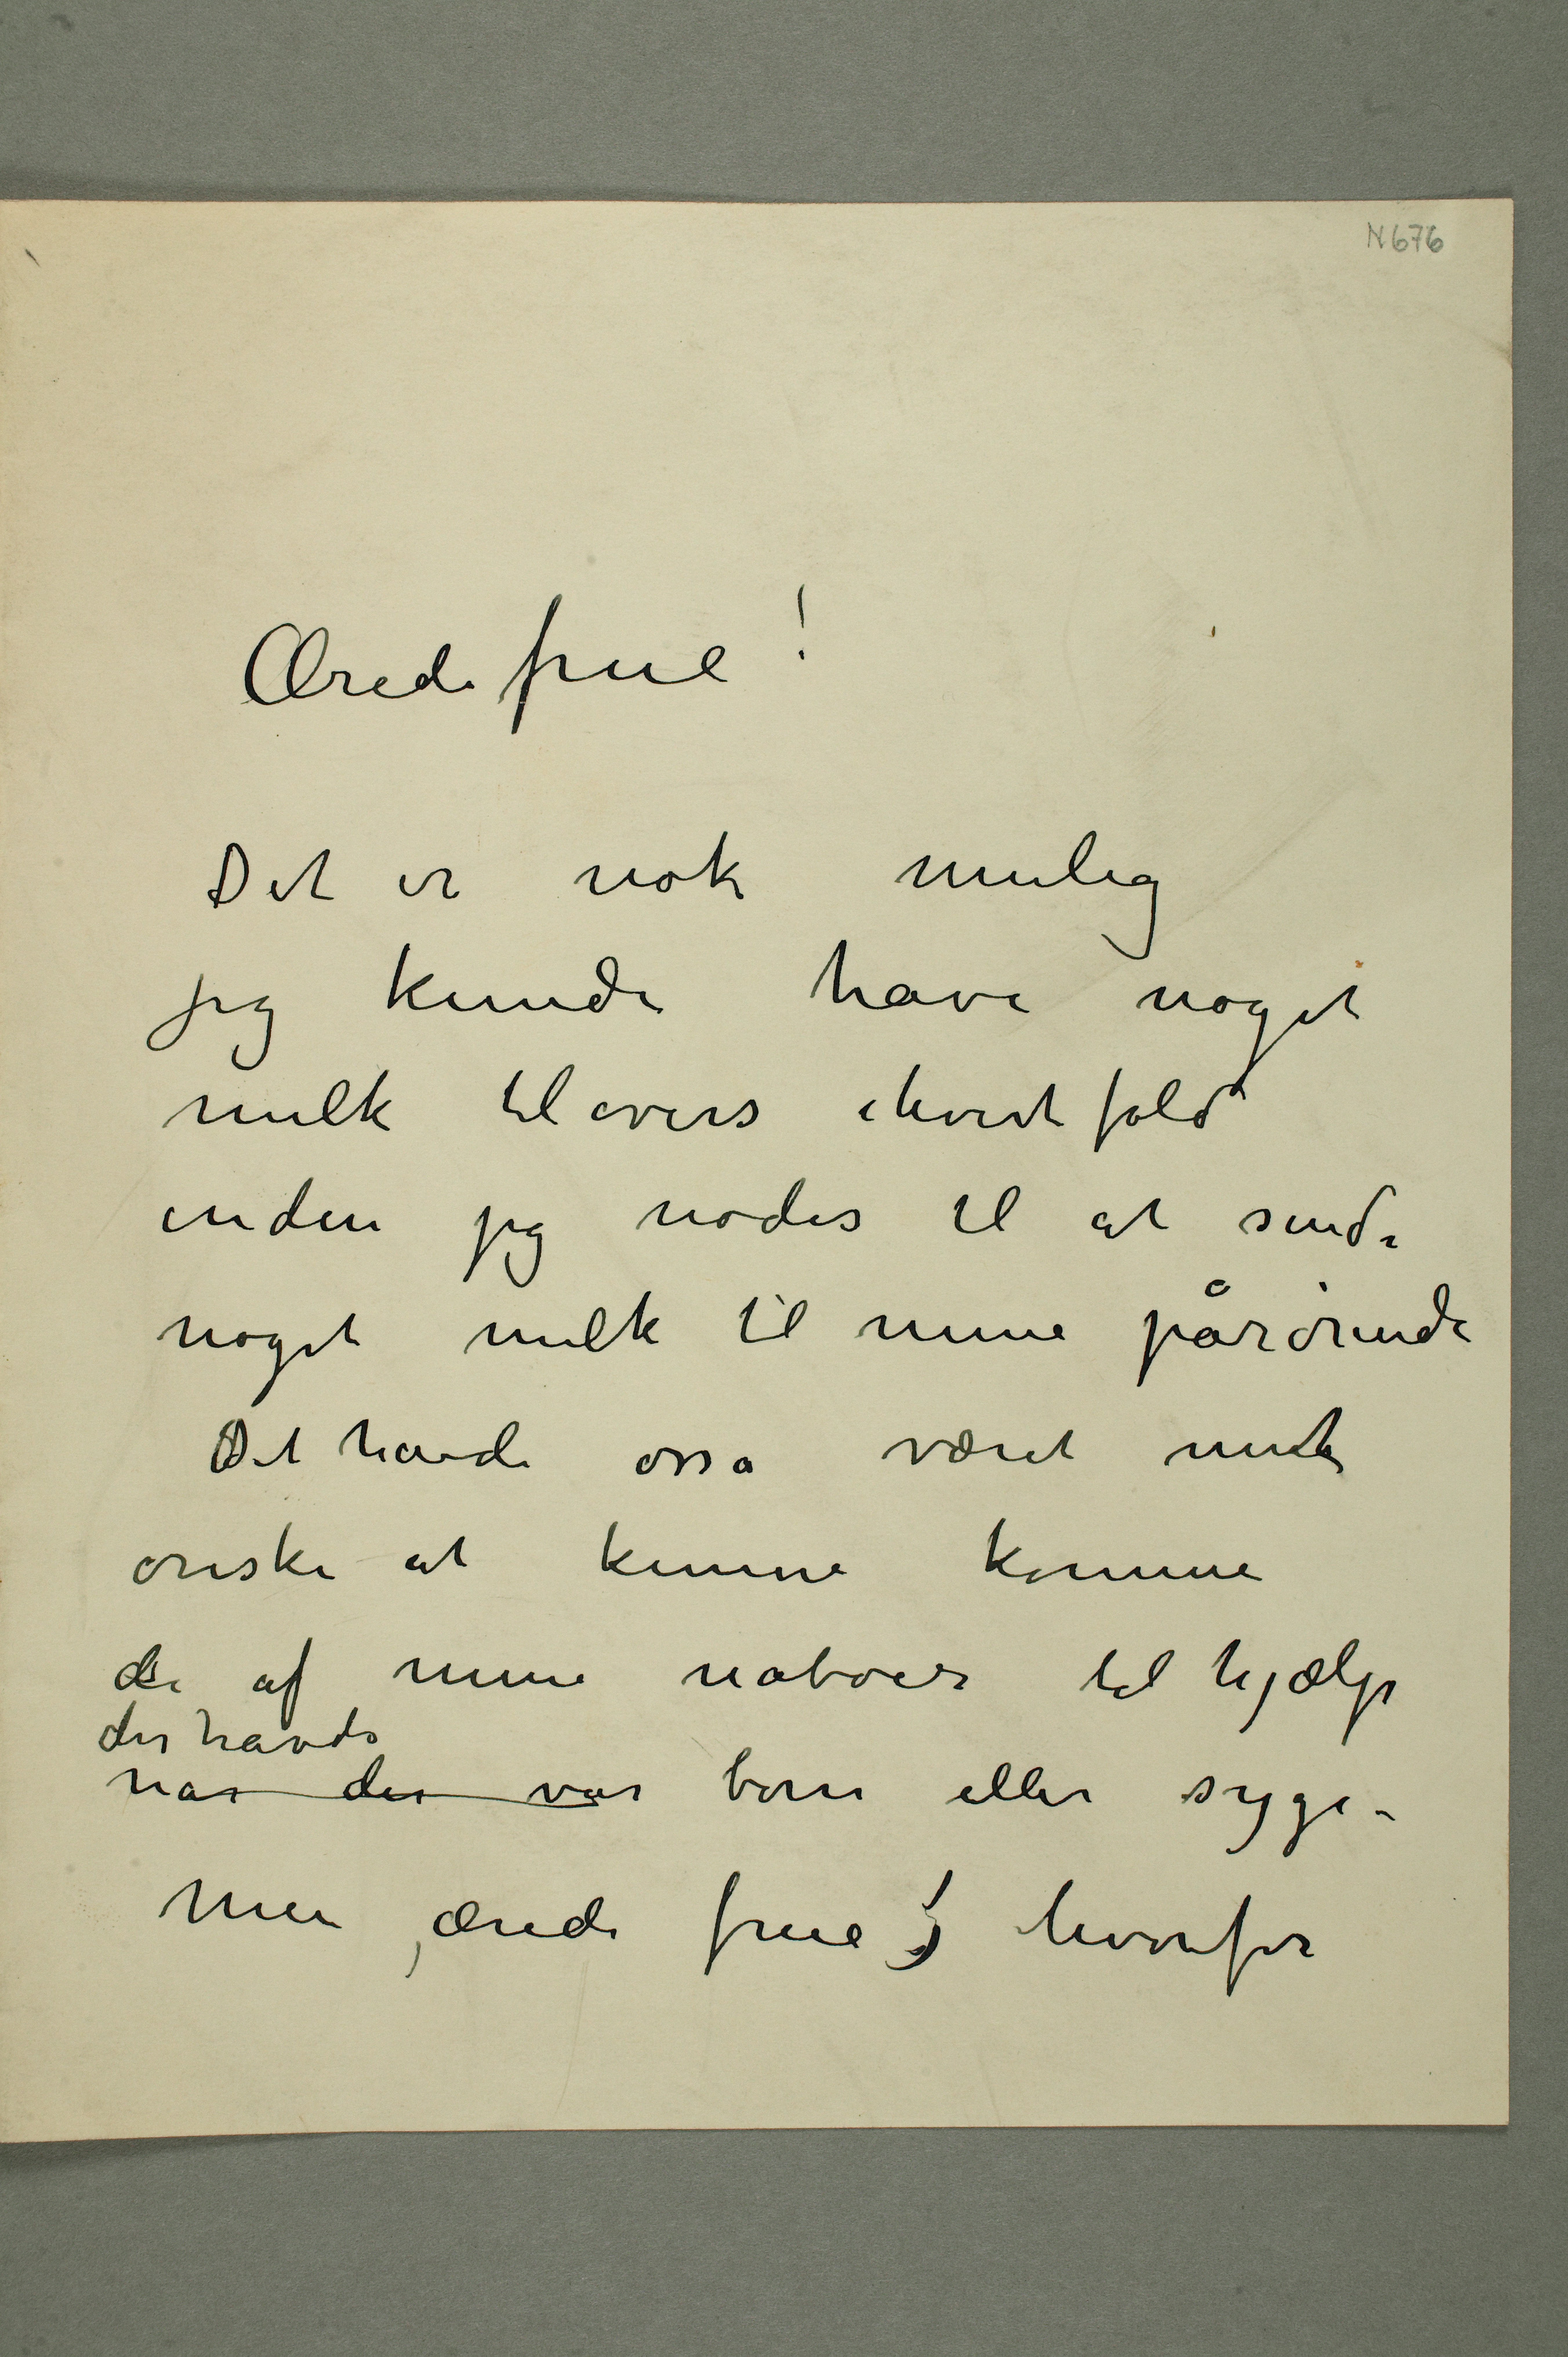 N 676
Ærede frue!
Det er nok mulig
jeg kunde have noget
melk tilovers ihvertfald
inden jeg nødes til at sende
noget melk til mine pårørende
Det havde osså været mit
ønske at kunne komme
de af mine naboer til hjælp
der havde
når der var børn eller syge –
Men, ærede frue! hvorfor